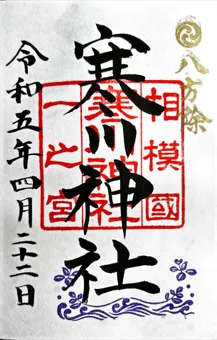 八方除
相模國
寒川神社
一之宮
寒川神社
令和五年四月二十二日